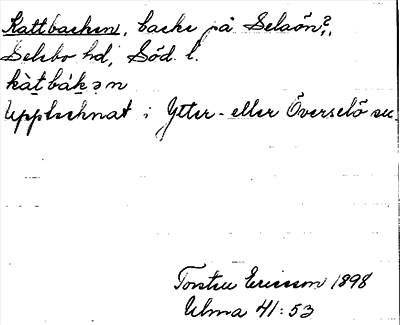 Kattbacken, backe på Selaön?,
Selebo hd, Söd l.
kàtbákən
Upptecknat i Ytter- eller Överselö sn.
Torsten Ericsson 1898
Ulma 41:53